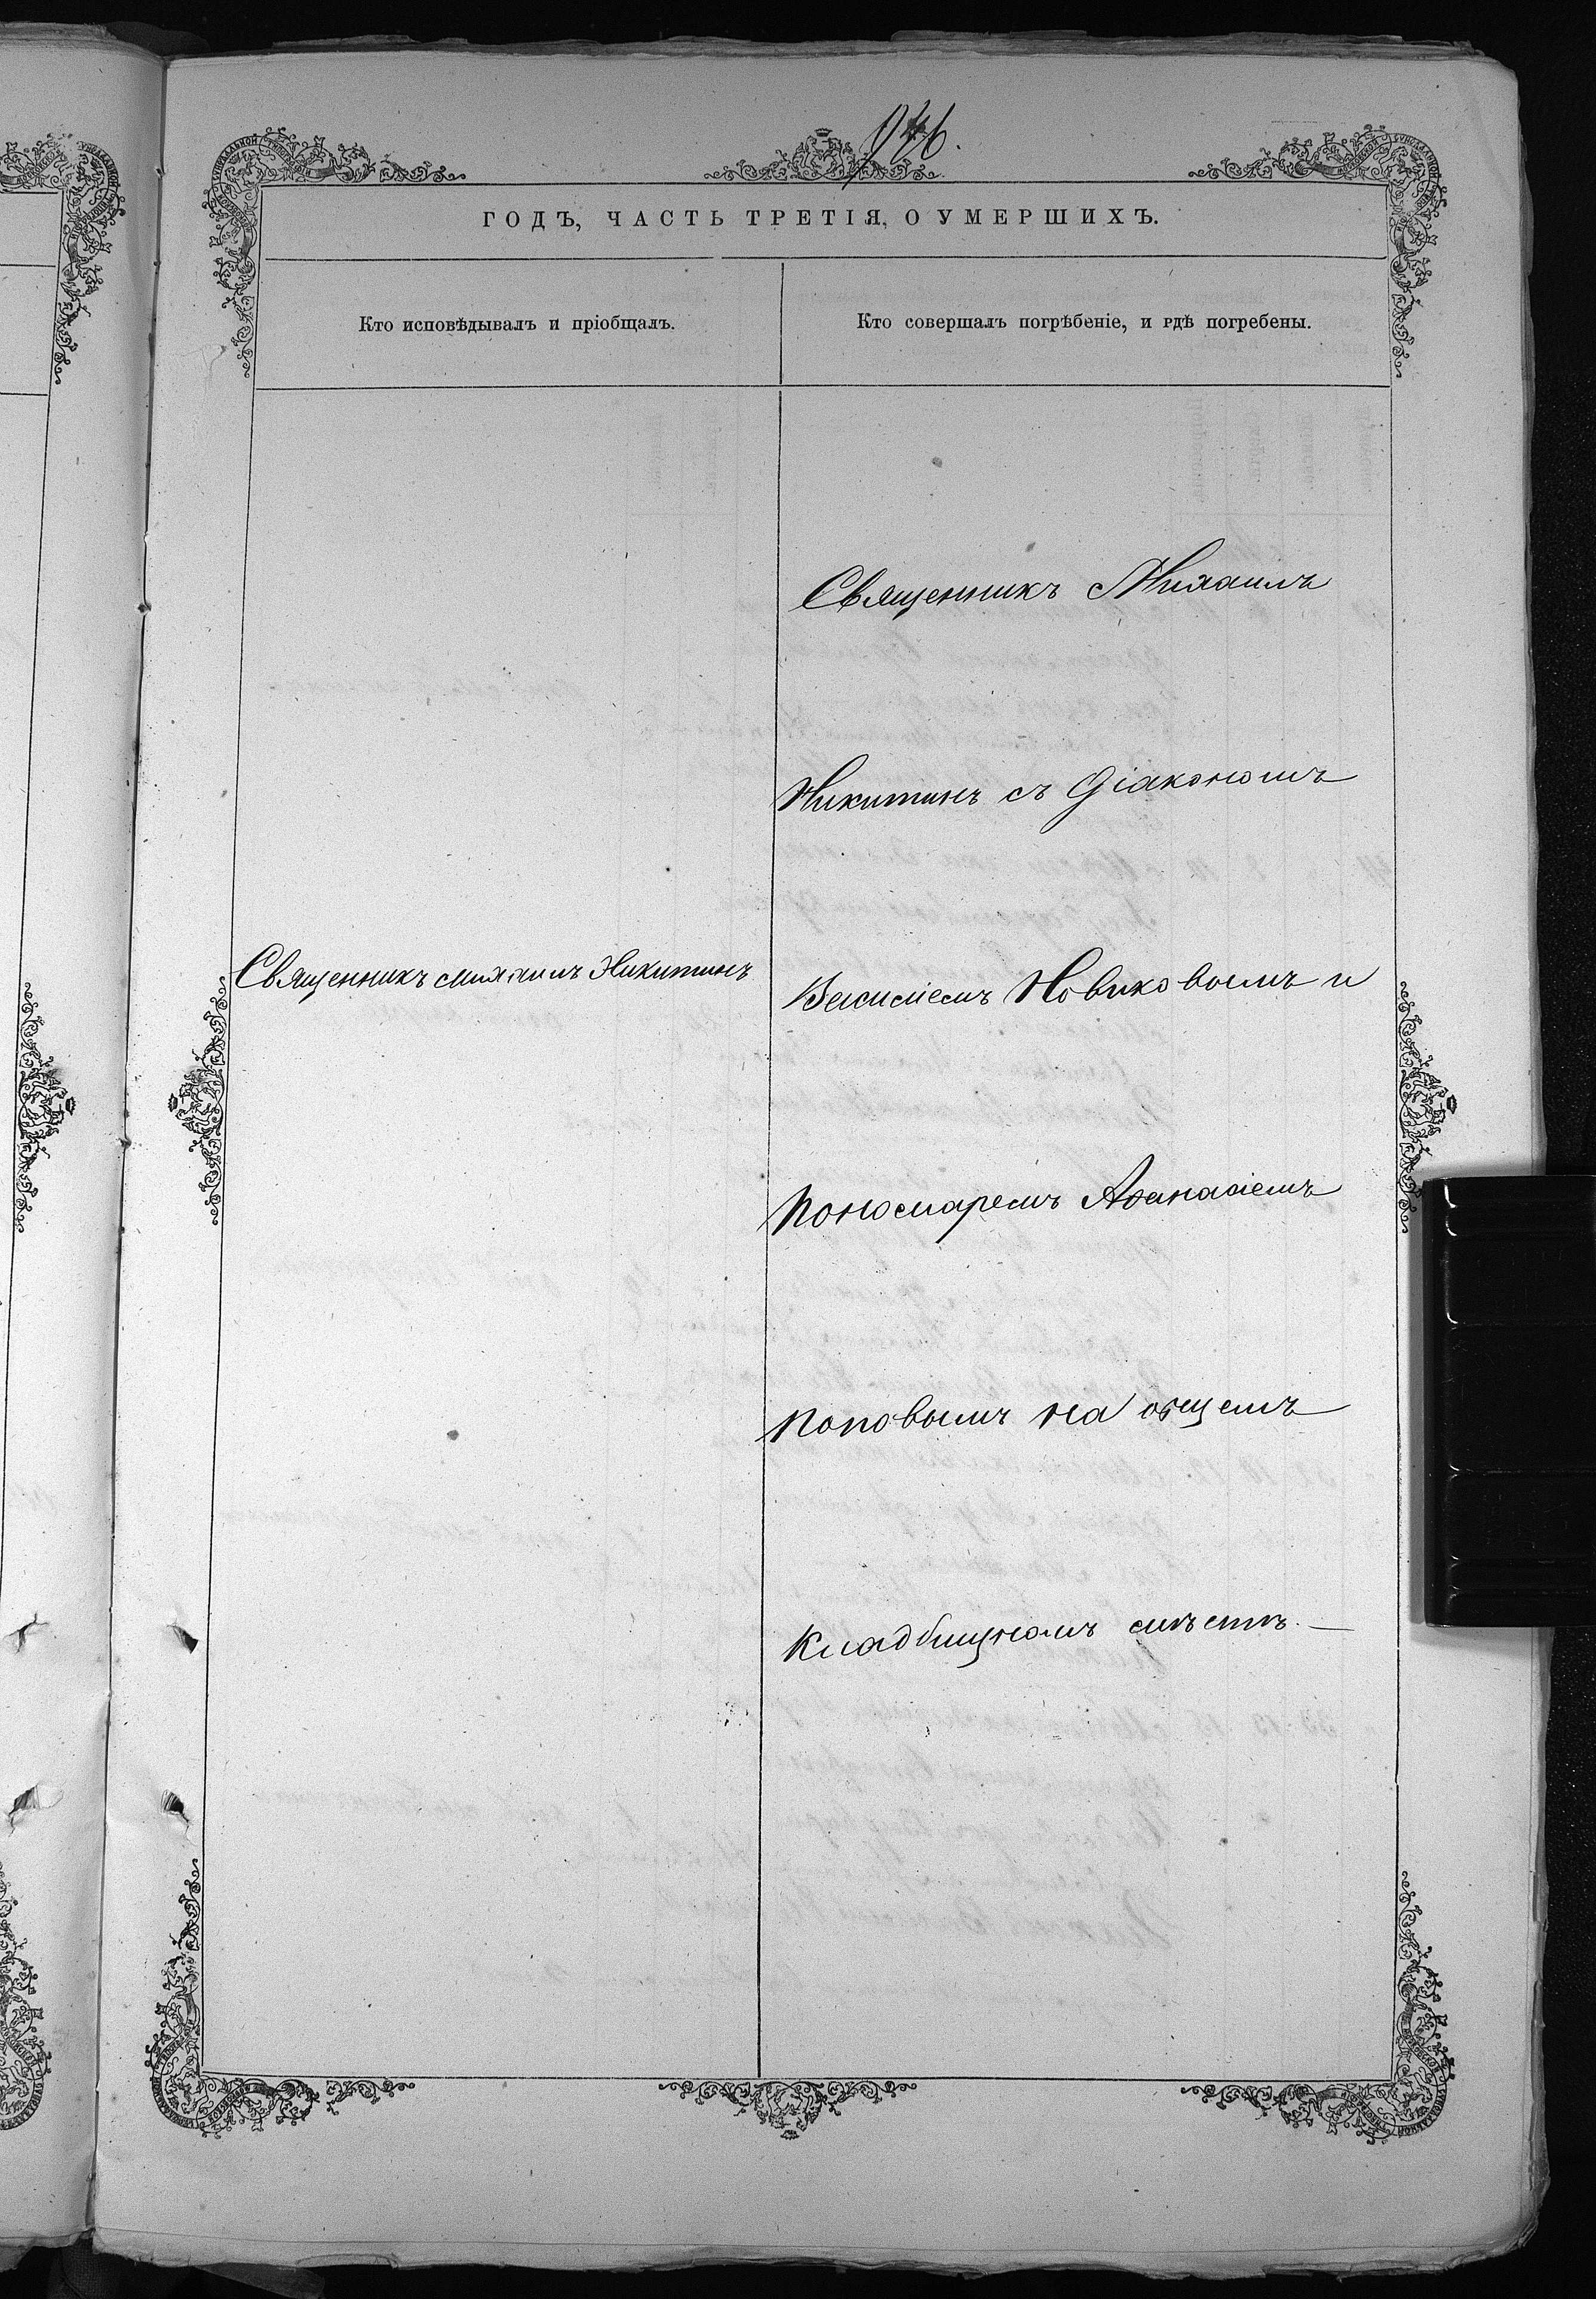 946.
ГОДЪ, ЧАСТЬ ТРЕТІЯ, О УМЕРШИХЪ.
Кто исповѣдывалъ и пріобщалъ.
Кто совершалъ погрѣбеніе, и гдѣ погребены.
Священникъ Михаилъ Никитинъ
Священникъ Михаилъ
Никитинъ съ Діакономъ
Василіемъ Новиковымъ и
Пономаремъ Аѳанасіемъ
Поповымъ на общемъ
Кладбищномъ мѣстѣ. —